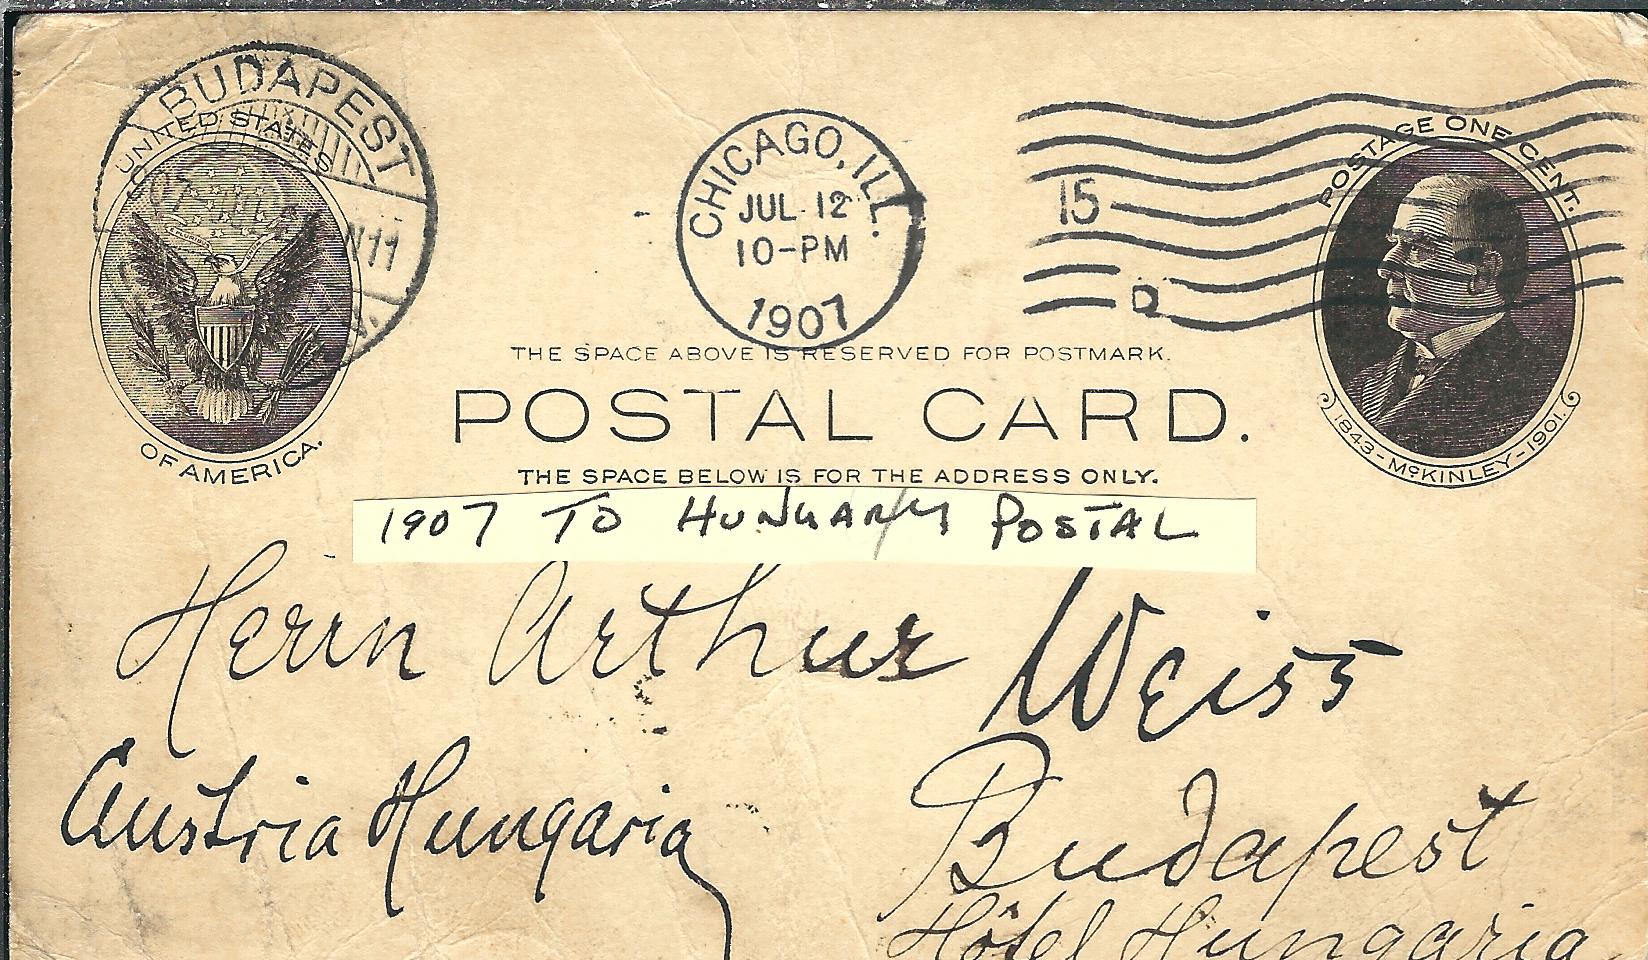 BUDAPEST
UNITED STATES
OF AMERICA.
CHICAGO, ILL.
JUL 12
10-PM
1907
15
D
POSTAGE ONE CENT.
1843-McKINLEY-1901.
THE SPACE ABOVE IS RESERVED FOR POSTMARK.
POSTAL CARD.
THE SPACE BELOW IS FOR THE ADDRESS ONLY.
1907 TO HUNGARY POSTAL
Herrn Arthur Weiss
Austria Hungaria
Budapest
Hôtel Hungaria